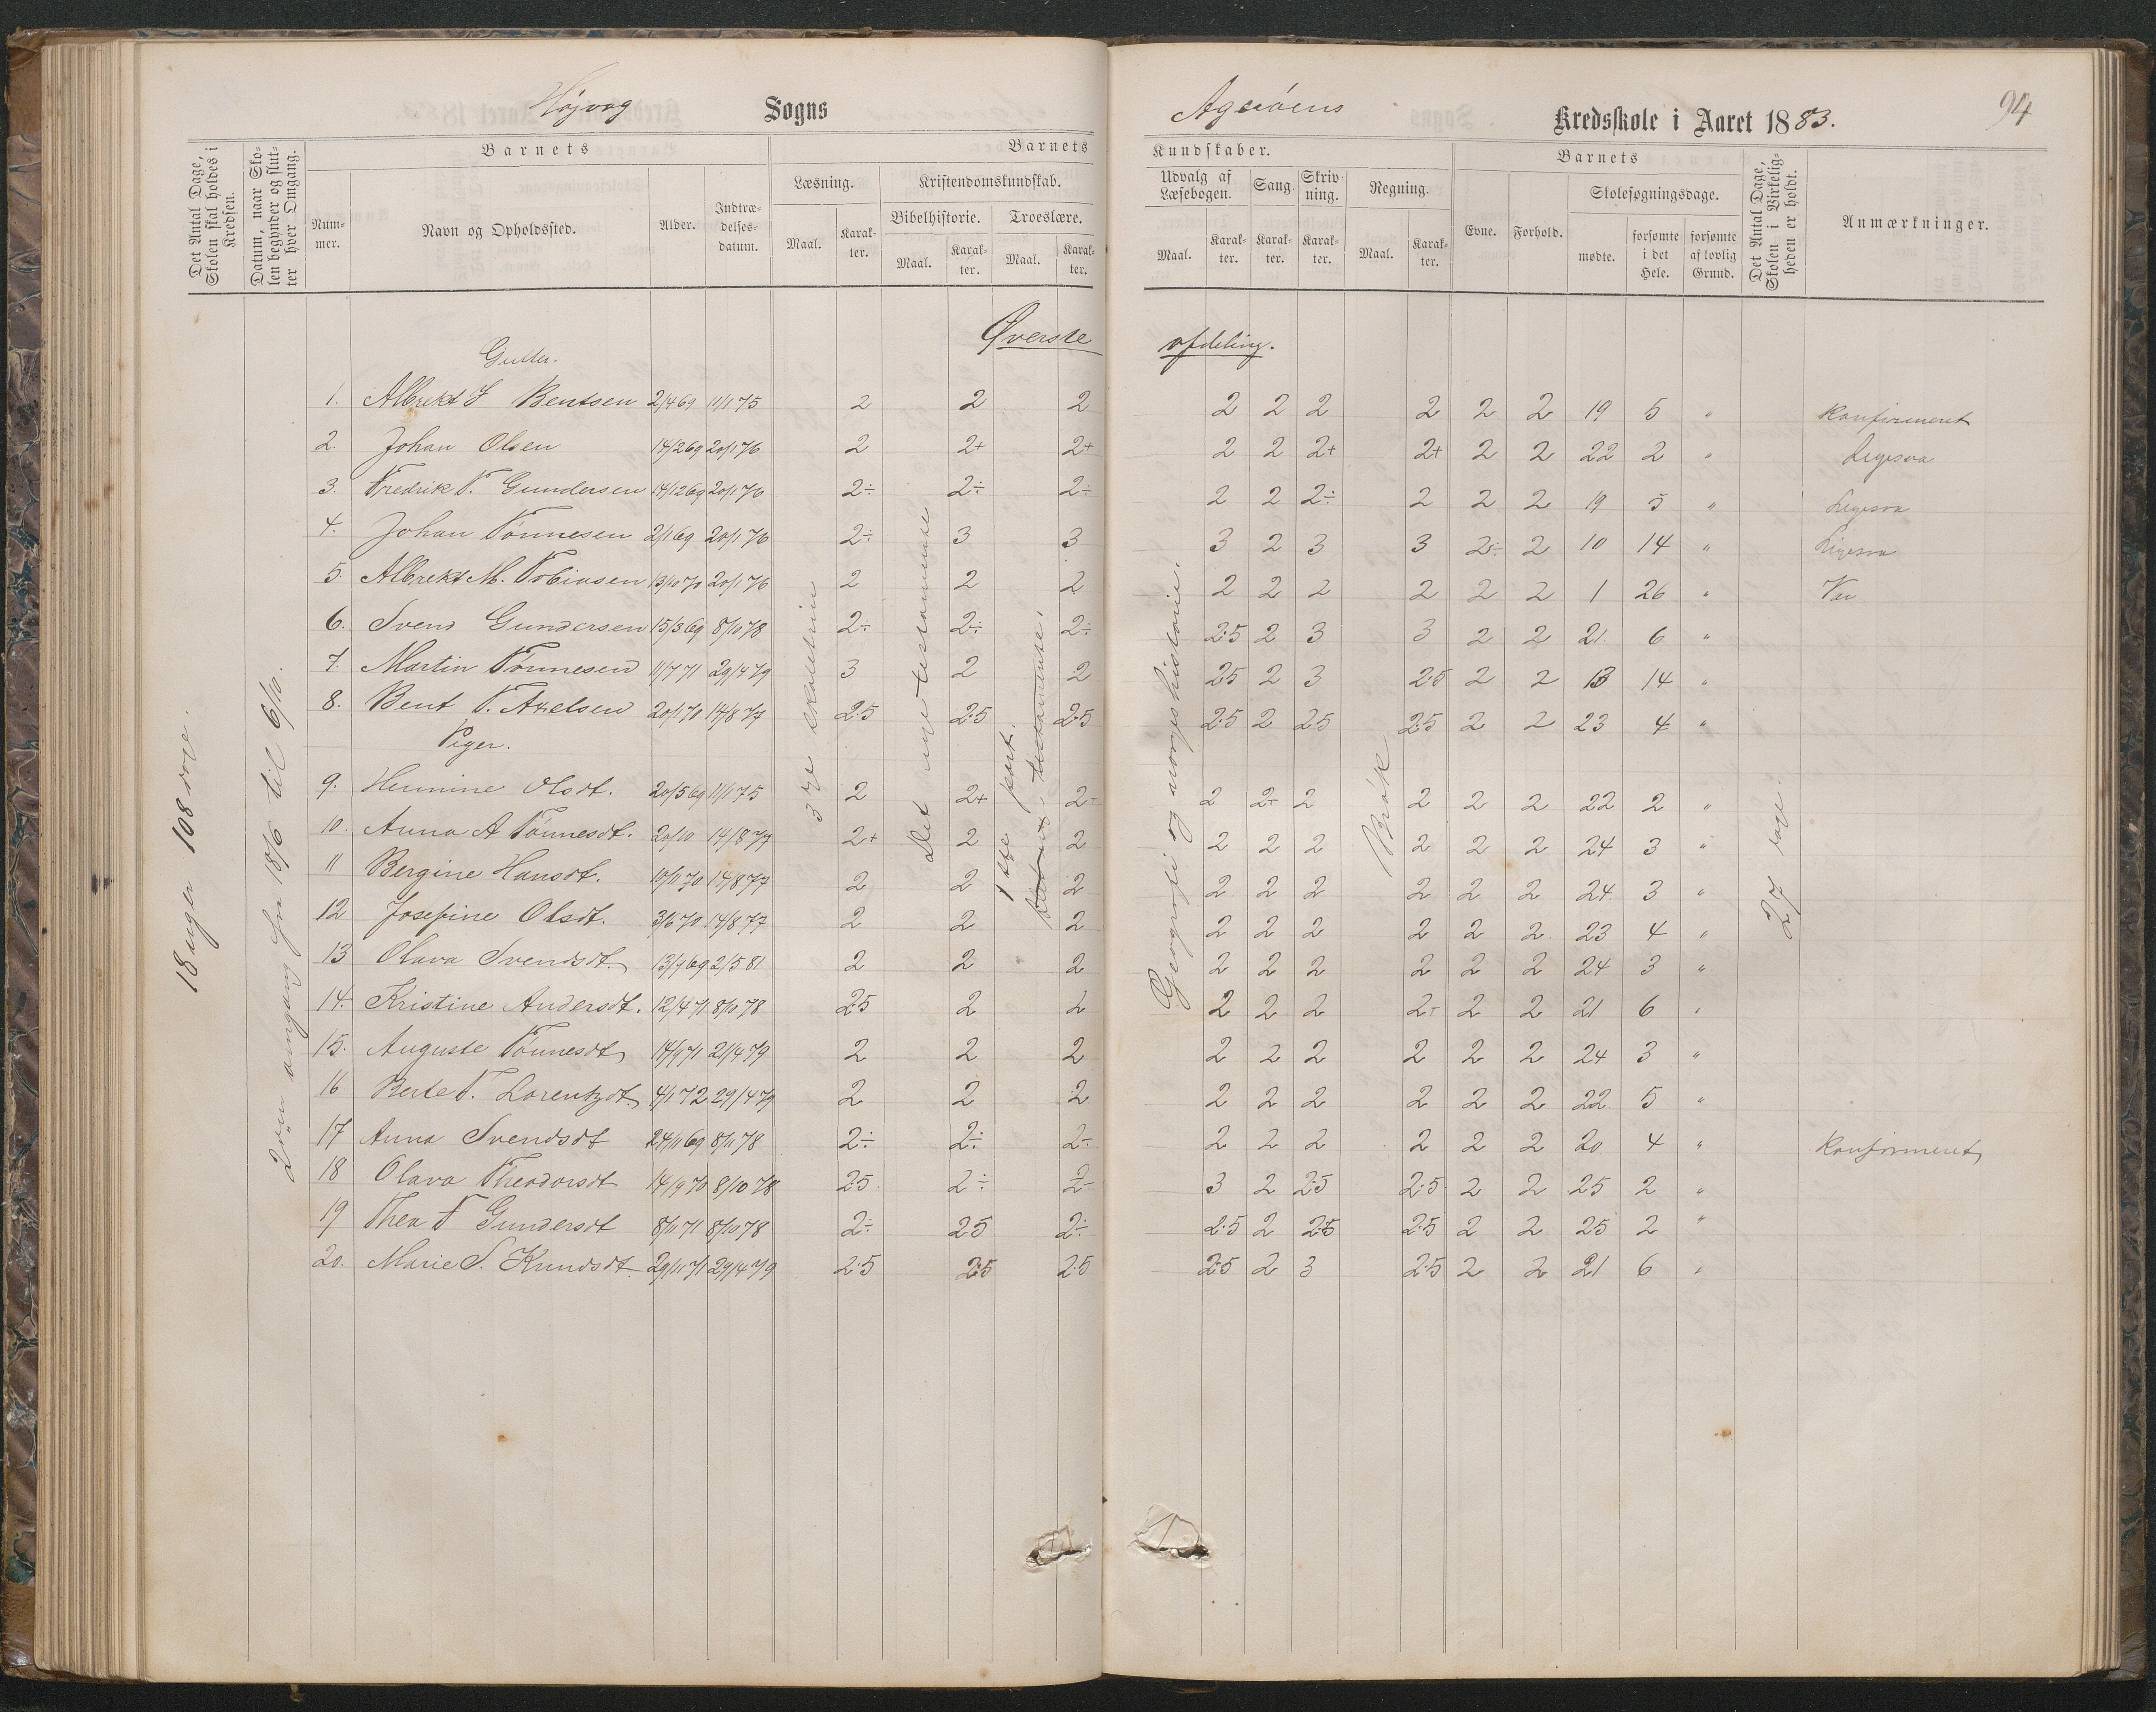 Højvag Sogns
Agerøens Kredsskole i Aaret 1883.
94
Det Antal Dage, Skolen skal holdes i Kredsen.
Datum, naar Skolen begynder og slutter hver Omgang.
Barnets
Nummer.
Navn og Opholdssted.
Alder.
Indtrædelsesdatum.
Barnets
Læsning.
Maal.
Karakter.
Kristendomskundskab.
Bibelhistorie.
Maal.
Karakter.
Troeslære.
Maal.
Karakter.
Kundskaber.
Udvalg af Læsebogen.
Maal.
Karakter.
Sang.
Karakter.
Skrivning.
Karakter.
Regning.
Maal.
Karakter.
Barnets
Evne.
Forhold.
Skolesøgningsdage.
mødte.
forsømte i det Hele.
forsømte af lovlig Grund.
Det Antal Dage, Skolen i Virkeligheden er holdt.
Anmærkninger.
Øverste afdeling.
18 uger 108 dage.
2den omgang fra 18/6 til 6/10.
3die skoletrin
Det nye testamente
1ste part.
Det nye testamente.
Geografi og norges historie.
Brøk
27 dage.
Gutter.
1. Albrekt J Bentsen 2/4 69 11/1 75 2 2 2 2 2 2 2 2 2 19 5 " Konfirmeret
2. Johan Olsen 14/2 69 20/1 76 2 2+ 2+ 2 2 2+ 2+ 2 2 22 2 " Ligesaa
3. Fredrik T. Gundersen 14/12 69 20/1 76 2÷ 2÷ 2÷ 2 2 2÷ 2 2 2 19 5 " Ligesaa
4. Johan Tönnesen 2/1 69 20/1 76 2÷ 3 3 3 2 3 3 2÷ 2 10 14 " Ligesaa
5. Albrekt M. Tobiasen 13/10 70 20/1 76 2 2 2 2 2 2 2 2 2 1 26 "
6. Svend Gundersen 15/3 69 8/10 78 2÷ 2÷ 2÷ 2.5 2 3 3 2 2 21 6 "
7. Martin Tönnesen 11/7 71 29/4 79 3 2 2 2.5 2 3 2.5 2 2 13 14 "
8. Bent T. Axelsen 20/1 70 14/8 77 2.5 2.5 2.5 2.5 2 2.5 2.5 2 2 23 4 "
Piger.
9. Hemine Olsdt. 20/5 69 11/1 75 2 2+ 2÷ 2 2÷ 2 2 2 2 22 2 "
10. Anna A Tönnesdt. 20/10 14/8 77 2+ 2 2 2 2 2 2 2 2 24 3 "
11 Bergine Hansdt. 10/11 70 14/8 77 2 2 2 2 2 2 2 2 2 24 3 "
12 Josefine Olsdt. 3/6 70 14/8 77 2 2 2 2 2 2 2 2 2 23 4 "
13 Olava Svendsdt. 13/9 69 2/5 81 2 2 2 2 2 2 2 2 2 24 3 "
14. Kristine Andersdt. 12/4 71 8/10 78 2.5 2 2 2 2 2 2÷ 2 2 21 6 "
15. Auguste Tönnesdt 14/9 71 21/4 79 2 2 2 2 2 2 2 2 2 24 3 "
16 Berte T. Lorentzdt. 4/1 72 29/4 79 2 2 2 2 2 2 2 2 2 22 5 "
17 Anna Svendsdt 24/11 69 8/11 78 2÷ 2÷ 2÷ 2 2 2 2 2 2 20 4 " Konfirmeret
18 Olava Theodorsdt 14/9 70 8/10 78 2.5 2÷ 2÷ 3 2 2.5 2.5 2 2 25 2 "
19 Thea T Gundersdt 8/11 71 8/10 78 2÷ 2.5 2÷ 2.5 2 2.5 2.5 2 2 25 2 "
20. Marie S. Knudsdt 29/11 71 29/4 79 2.5 2.5 2.5 2.5 2 3 2.5 2 2 21 6 "